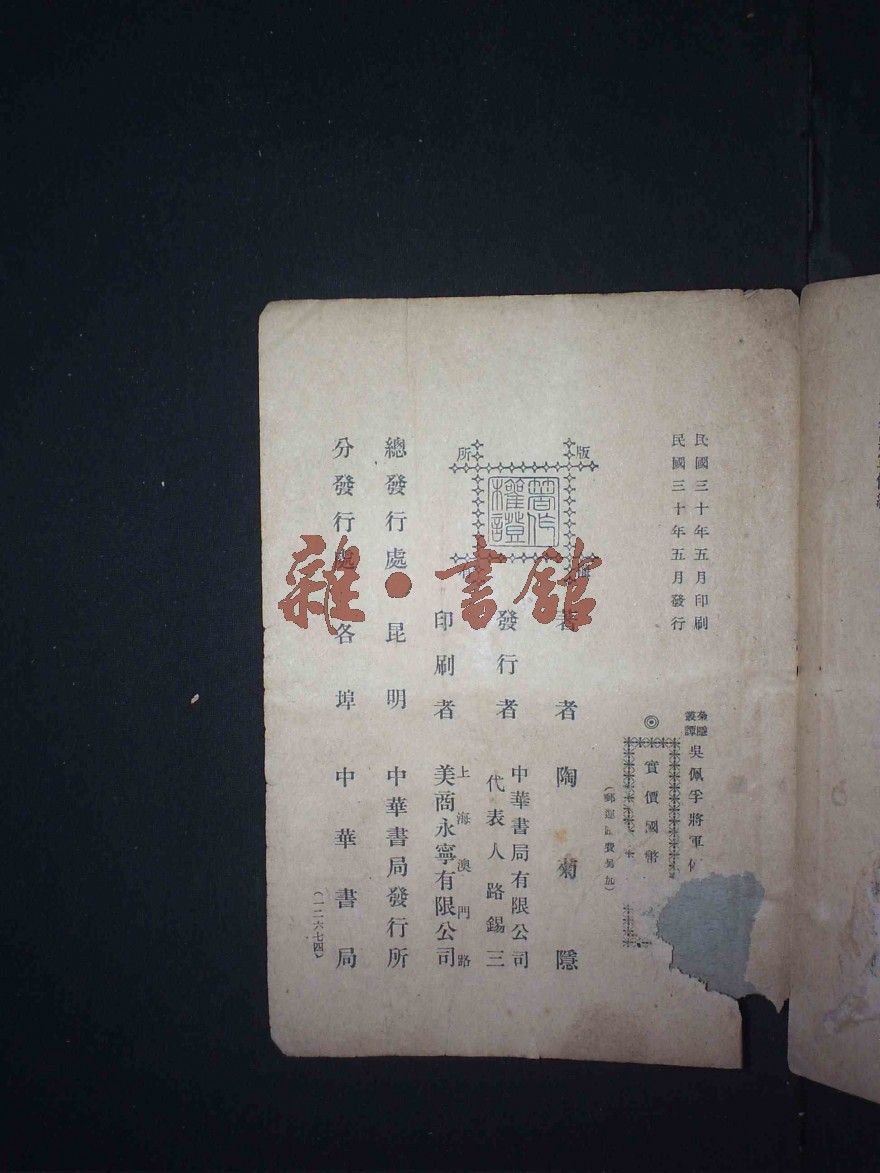 民國三十年五月印刷
民國三十年五月發行
菊隱叢譚
吳佩孚將軍
◎實價國幣
(郵運匯費另加)
版權所有
著作權證
著者 陶菊隱
發行者 中華書局有限公司
代表人路錫三
印刷者 上海澳門路
美商永寧有限公司
總發行處 昆明 中華書局發行所
分發行處 各埠 中華書局
(一二六七四)
雜·書館